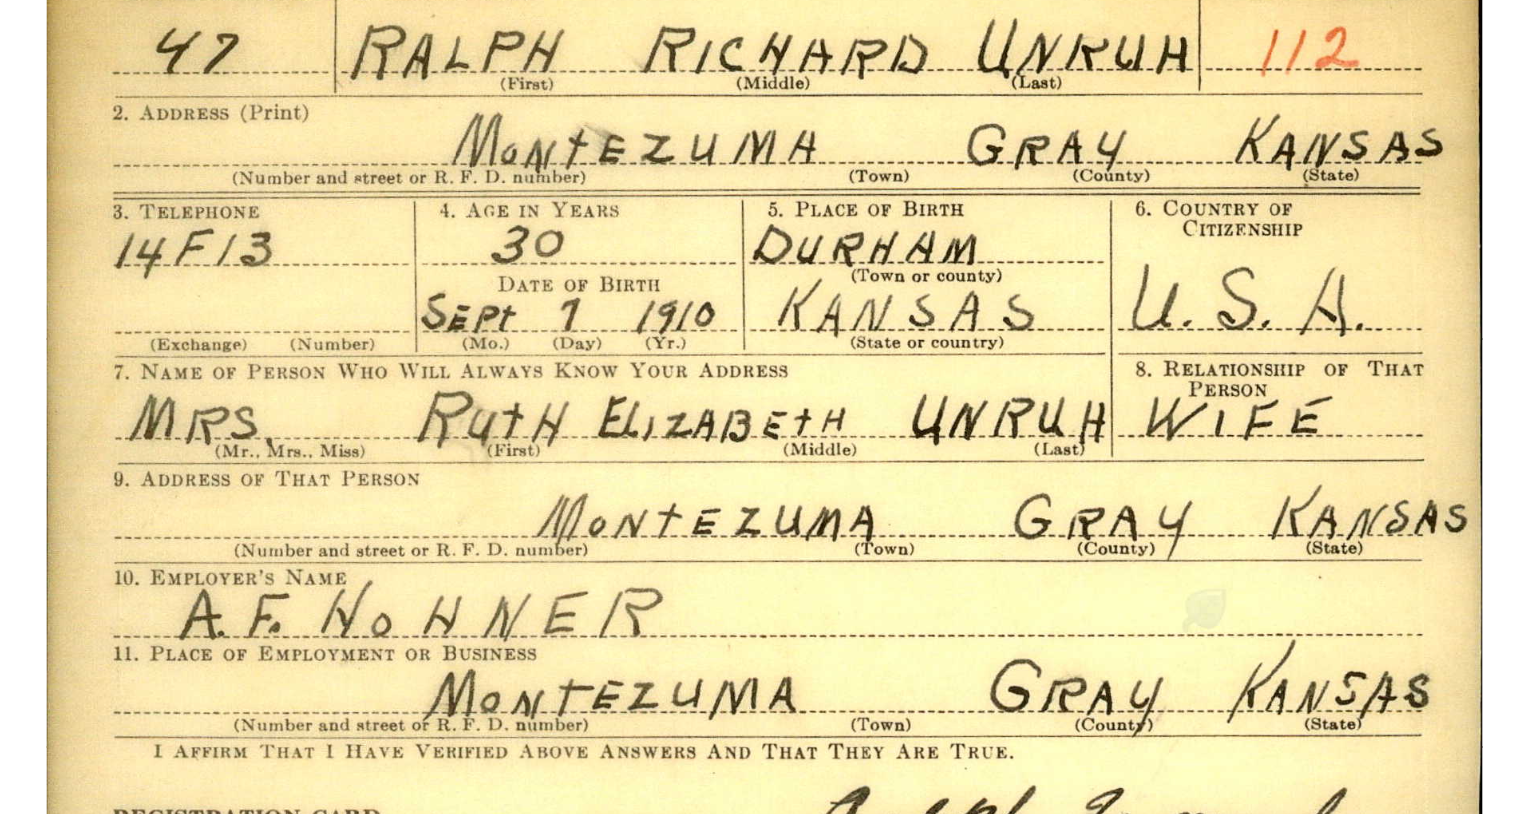 47 RALPH RICHARD UNRUH 112
(First) (Middle) (Last)
2. ADDRESS (Print)
MONTEZUMA GRAY KANSAS
(Number and street or R. F. D. number) (Town) (County) (State)
3. TELEPHONE 4. AGE IN YEARS 5. PLACE OF BIRTH 6. COUNTRY OF
CITIZENSHIP
14F13 30 DURHAM
(Town or county)
DATE OF BIRTH
SEPT 7 1910 KANSAS U. S. A.
(Exchange) (Number) (Mo.) (Day) (Yr.) (State or country)
7. NAME OF PERSON WHO WILL ALWAYS KNOW YOUR ADDRESS 8. RELATIONSHIP OF THAT
PERSON
MRS. RUTH ELIZABETH UNRUH WIFE
(Mr., Mrs., Miss) (First) (Middle) (Last)
9. ADDRESS OF THAT PERSON
MONTEZUMA GRAY KANSAS
(Number and street or R. F. D. number) (Town) (County) (State)
10. EMPLOYER'S NAME
A. F. HOHNER
11. PLACE OF EMPLOYMENT OR BUSINESS
MONTEZUMA GRAY KANSAS
(Number and street or R. F. D. number) (Town) (County) (State)
I AFFIRM THAT I HAVE VERIFIED ABOVE ANSWERS AND THAT THEY ARE TRUE.
REGISTRATION CARD